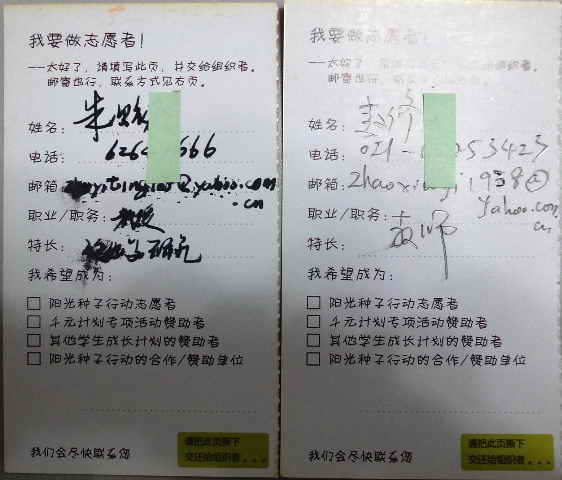 我要做志愿者!
——太好了,请填写此页,并交给组织者。
邮寄也行,联系方式见右页。
姓名: 朱
电话: 626 666
邮箱: @yahoo.com
.cn
职业/职务: 教授
特长: 研究
我希望成为:
阳光种子行动志愿者
斗元计划专项活动赞助者
其他学生成长计划的赞助者
阳光种子行动的合作/赞助单位
我们会尽快联系您
请把此页撕下
交还给组织者...
我要做志愿者!
——太好了,
邮寄也行,
姓名:
电话: 021- 253423
邮箱: @
yahoo.com
cn
职业/职务:
特长:
我希望成为:
阳光种子行动志愿者
斗元计划专项活动赞助者
其他学生成长计划的赞助者
阳光种子行动的合作/赞助单位
我们会尽快联系您
请把此页撕下
交还给组织者...